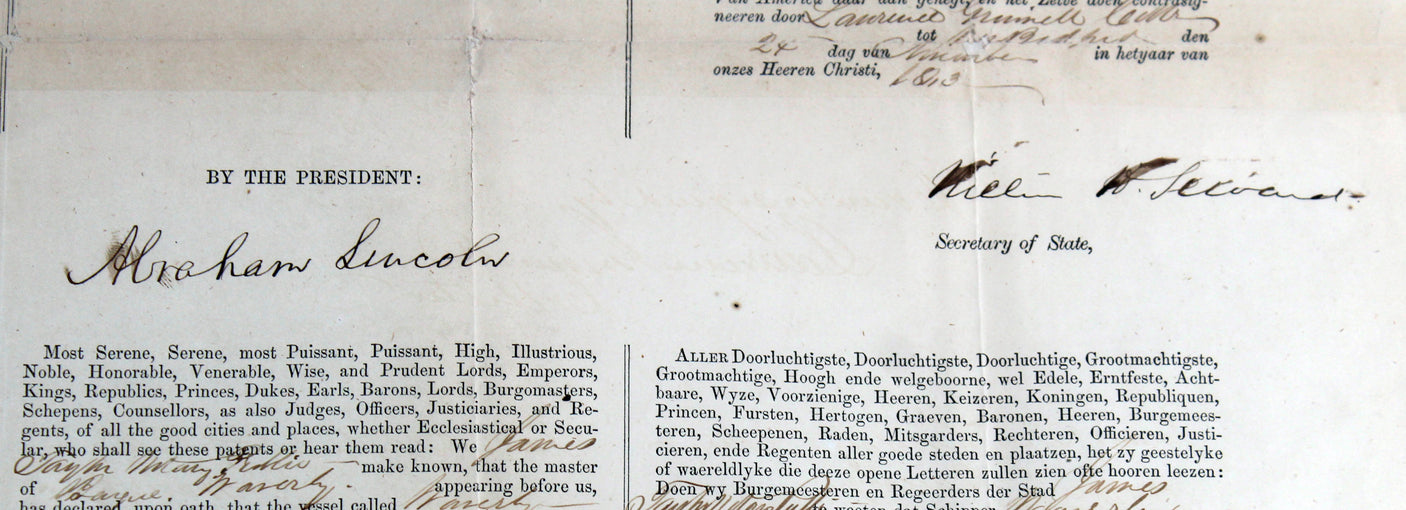 Van America daar aan gehegt, en het Zelve doen contrasig-
neeren door
tot den
24 dag van November in hetyaar van
onzes Heeren Christi,
BY THE PRESIDENT:
Abraham Lincoln
William H. Seward
Secretary of State,
Most Serene, Serene, most Puissant, Puissant, High, Illustrious,
Noble, Honorable, Venerable, Wise, and Prudent Lords, Emperors,
Kings, Republics, Princes, Dukes, Earls, Barons, Lords, Burgomasters,
Schepens, Counsellors, as also Judges, Officers, Justiciaries, and Re-
gents, of all the good cities and places, whether Ecclesiastical or Secu-
lar, who shall see these patents or hear them read: We James
make known, that the master
of Waverly appearing before us,
has declared, upon oath, that the vessel called Waverly
ALLER Doorluchtigste, Doorluchtigste, Doorluchtige, Grootmachtigste,
Grootmachtige, Hoogh ende welgeboorne, wel Edele, Erntfeste, Acht-
baare, Wyze, Voorzienige, Heeren, Keizeren, Koningen, Republiquen,
Princen, Fursten, Hertogen, Graeven, Baronen, Heeren, Burgemees-
teren, Scheepenen, Raden, Mitsgarders, Rechteren, Officieren, Justi-
cieren, ende Regenten aller goede steden en plaatzen, het zy geestelyke
of waereldlyke die deeze opene Letteren zullen zien ofte hooren leezen:
Doen wy Burgemeesteren en Regeerders der Stad James
te weeten dat Schipper